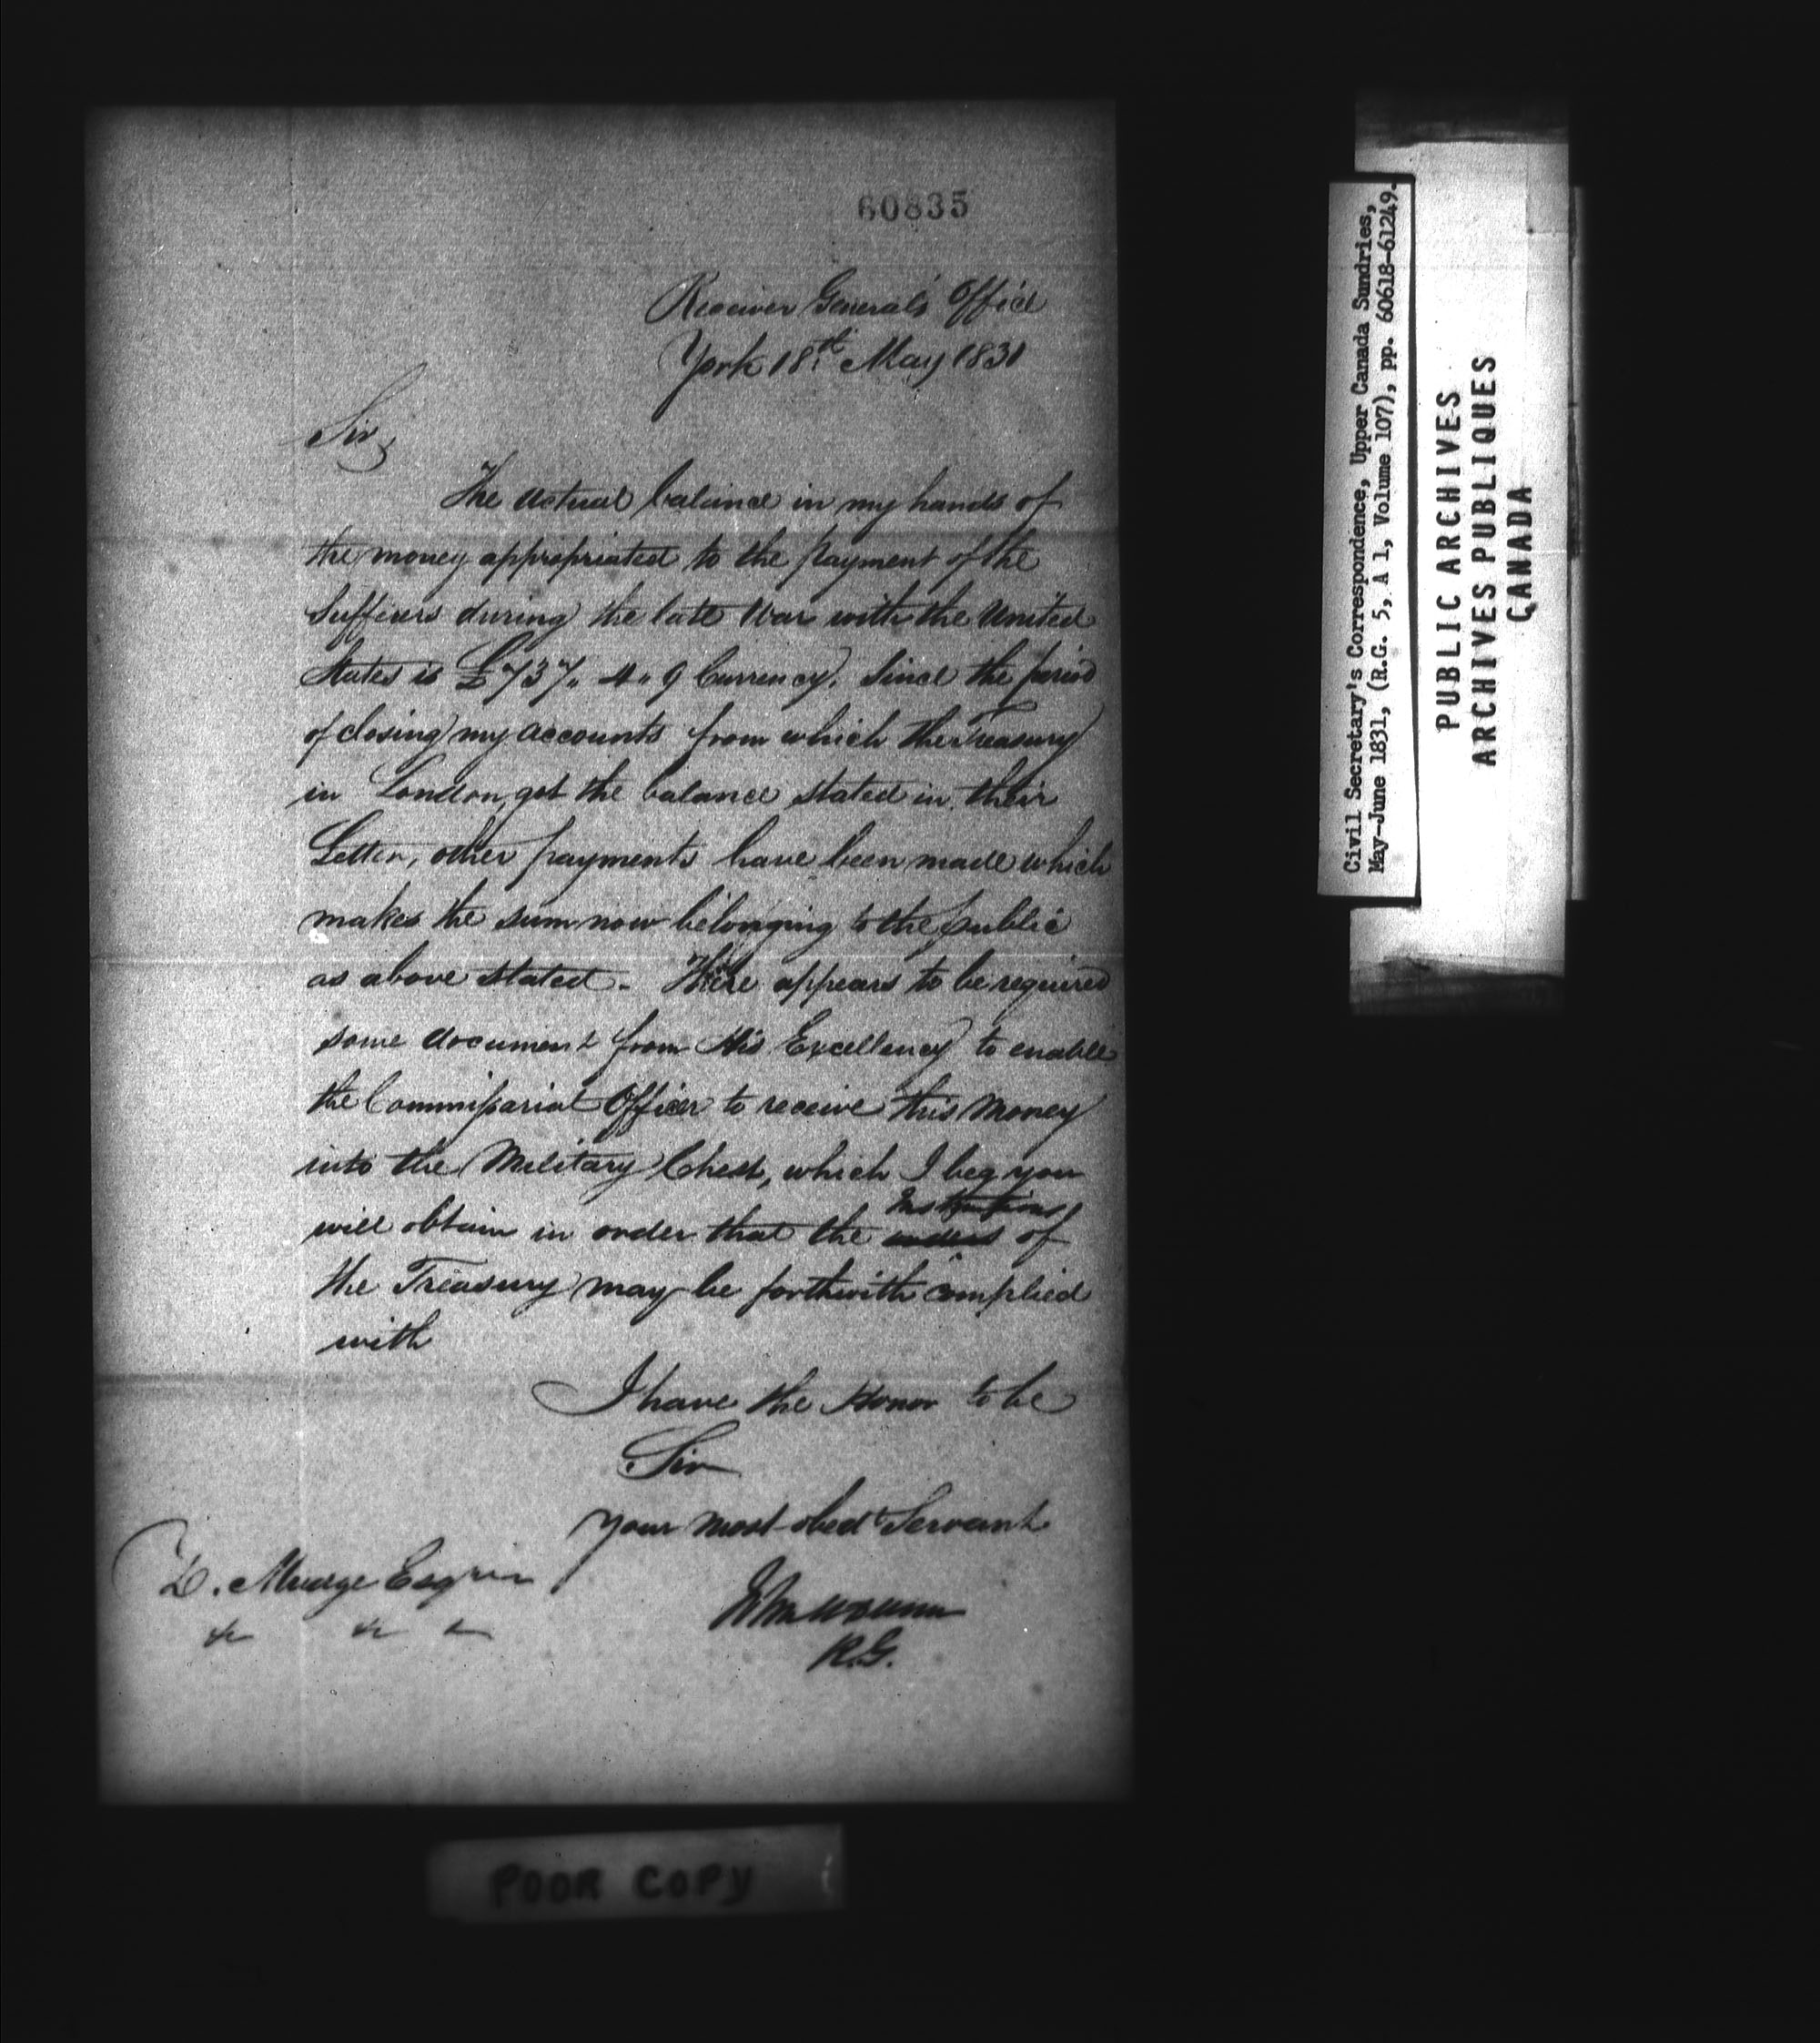 60835
Receiver Generals Office
York 18th May 1831
Sir,
The actual balance in my hands of
the money appropriated to the payment of the
Sufferers during the late War with the United
States is £737 „ 4 „ 9 Currency. Since the period
of closing my accounts from which the Treasury
in London, got the balance stated in their
Letter, other payments have been made which
makes the sum now belonging to the public
as above stated. There appears to be required
some document from His Excellency to enable
the Commissariat Officer to receive this Money
into the Military Chest, which I beg you
Instructions
will obtain in order that the orders of
the Treasury may be forthwith complied
with
I have the Honor to be
Sir
Your most obedt Servant
Z. Mudge Esquire
&c &c &c
R.G.
POOR COPY
Civil Secretary's Correspondence, Upper Canada Sundries,
May-June 1831, (R.G. 5, A 1, Volume 107), pp. 60618-61249.
PUBLIC ARCHIVES
ARCHIVES PUBLIQUES
CANADA